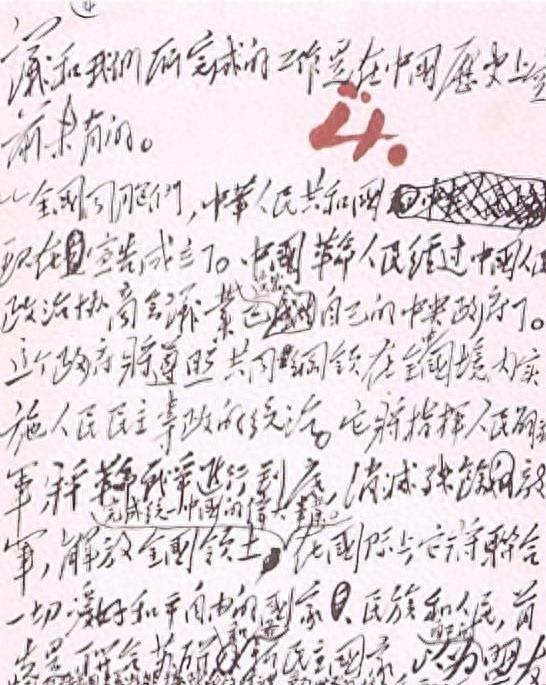 ④
議和我們所完成的工作是在中國歷史上空
前未有的。
4.
全國同胞們,中華人民共和國
現在宣告成立了。中國革命人民經过中國人民
政治协商會議業已自己的中央政府了。
这个政府將遵照共同綱領在全國境內实
施人民民主專政的統治。它將指揮人民解放
軍將革命战爭進行到底,消滅残餘敵
完成統一中國的偉大事業。
軍,解放全國領土,在國际上它將聯合
一切愛好和平自由的國家、民族和人民,首
先是联合苏联和各新民主國家,以为盟友